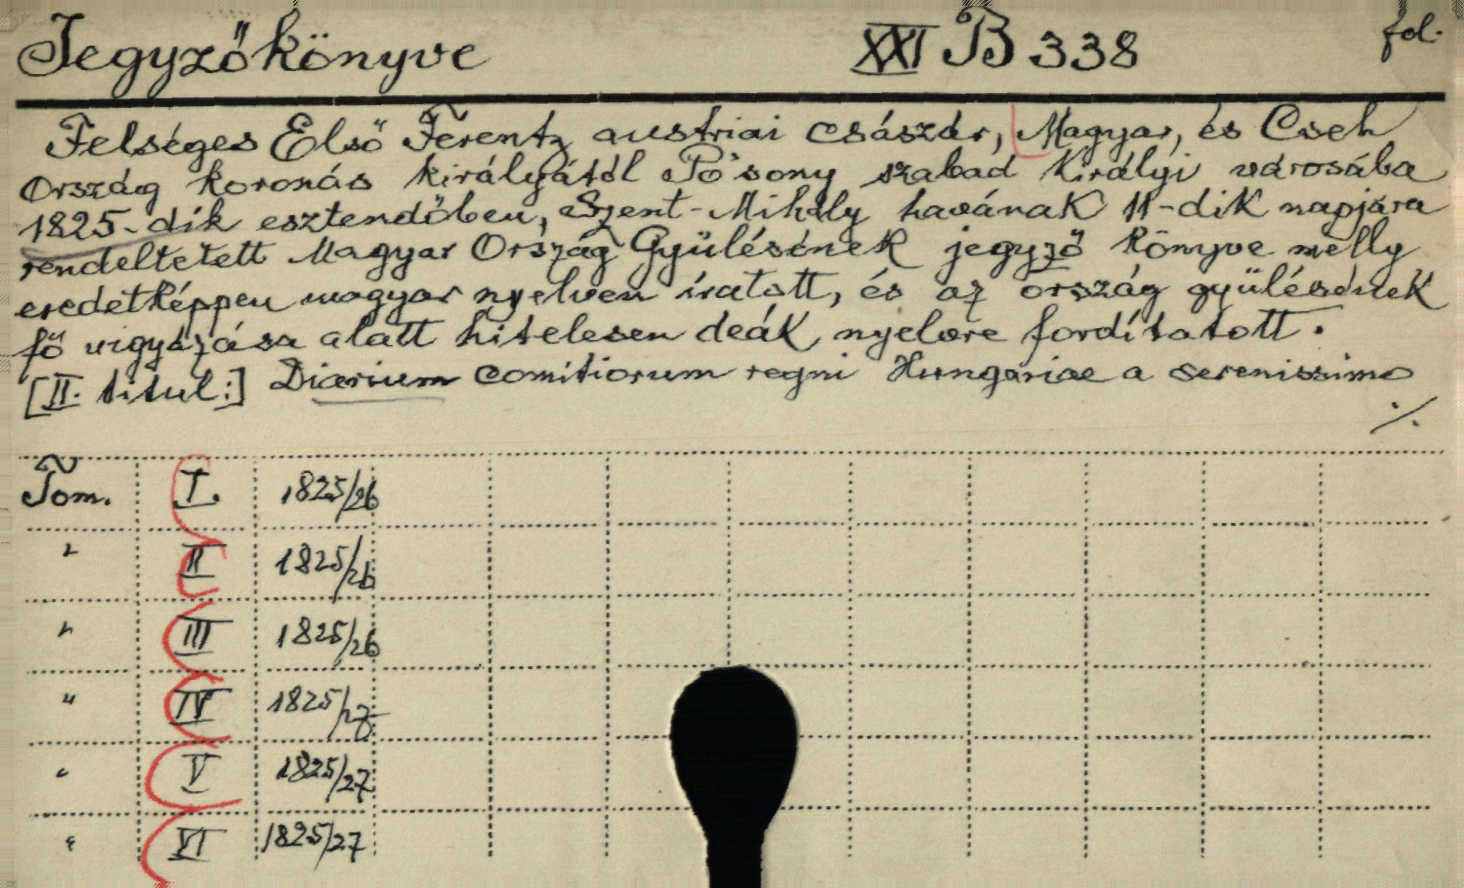 Jegyzőkönyve XXI B 338 fol.
Felséges Első Ferentz austriai császár, Magyar, és Cseh
Ország koronás királyától Po'sony szabad Királyi városába
1825-dik esztendőben, Szent-Mihály havának 11-dik napjára
rendeltetett Magyar Ország Gyülésének jegyző könyve melly
eredetképpen magyar nyelven iratott, és az ország gyülésének
fő vigyázása alatt hitelesen deák nyelvre fordítatott.
[II. titul:] Diarium comitiorum regni Hungariae a serenissimo
./.
Tom. I. 1825/26
" II 1825/26
" III 1825/26
" IV 1825/27
" V 1825/27
" VI 1825/27